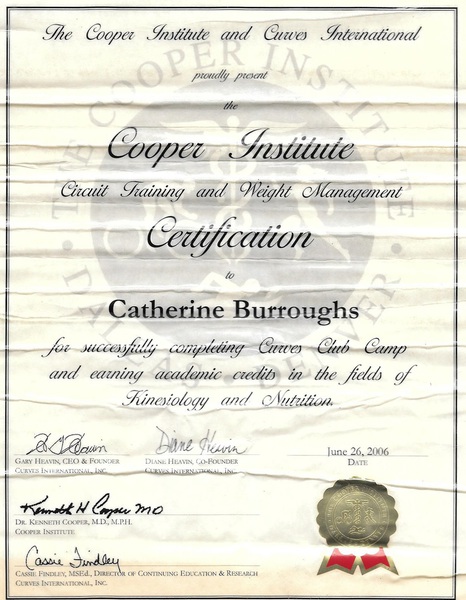 The Cooper Institute and Curves International
proudly present
the
Cooper Institute
Circuit Training and Weight Management
Certification
to
Catherine Burroughs
for successfully completing Curves Club Camp
and earning academic credits in the fields of
Kinesiology and Nutrition.
THE COOPER INSTITUTE
Diane Heavin
June 26, 2006
GARY HEAVIN, CEO & FOUNDER
DIANE HEAVIN, CO-FOUNDER
DATE
CURVES INTERNATIONAL, INC.
CURVES INTERNATIONAL, INC.
Kenneth H Cooper MD
DR. KENNETH COOPER, M.D., M.P.H.
COOPER INSTITUTE
Cassie Findley
CASSIE FINDLEY, MSEd., DIRECTOR OF CONTINUING EDUCATION & RESEARCH
CURVES INTERNATIONAL, INC.